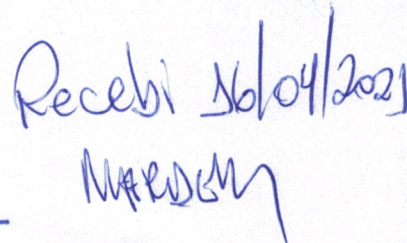 Recebi 16/04/2021